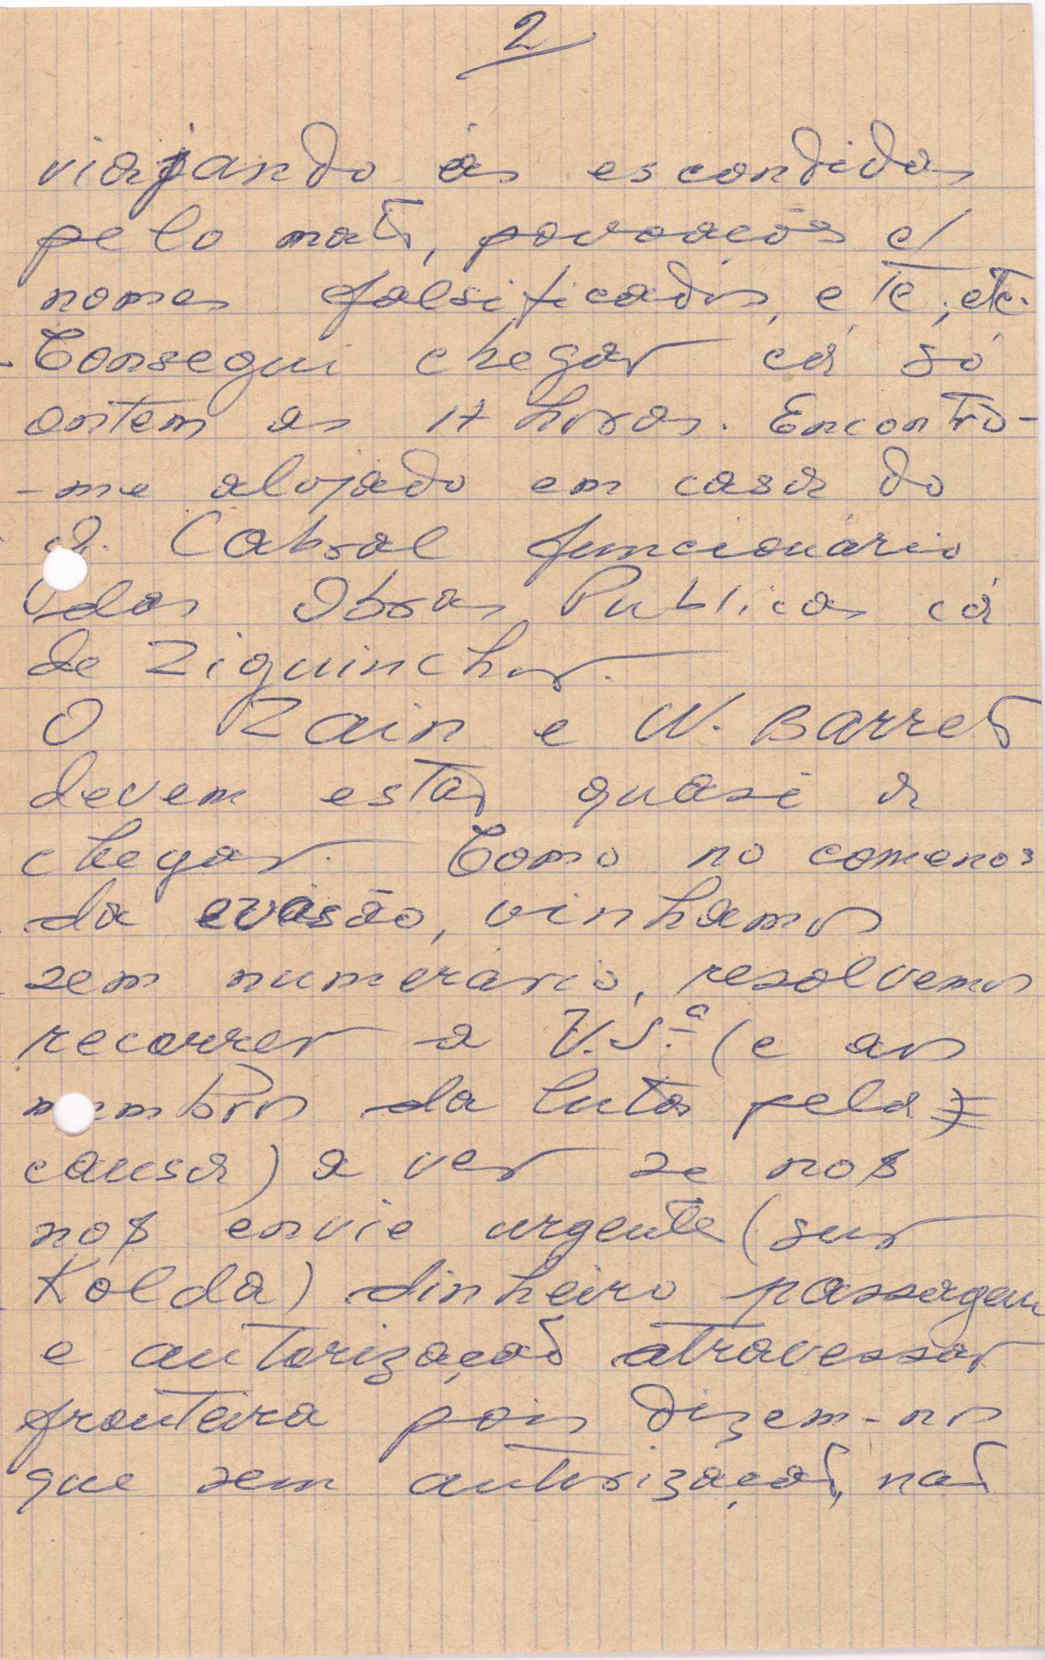 2
viajando ás escondidas
pelo mato, povoacõs c/
nomes falsificados, etc, etc.
Consegui chegar cá só
ontem as 17 horas. Encontro-
-me alojado em casa do
Cabral funcionário
das Obras Publicas cá
de Ziguinchor.
O Zain e W. Barreto
devem estar quasi a
chegar. Como no comenos
da evasão, vinhamos
sem numerário, resolvemos
recorrer a V.S.ª (e aos
membros da luta pela
causa) a ver se nos
nos envie urgente (sur
Kolda) dinheiro passagem
e autorização atravessar
fronteira pois dizem-nos
que sem autorização, não